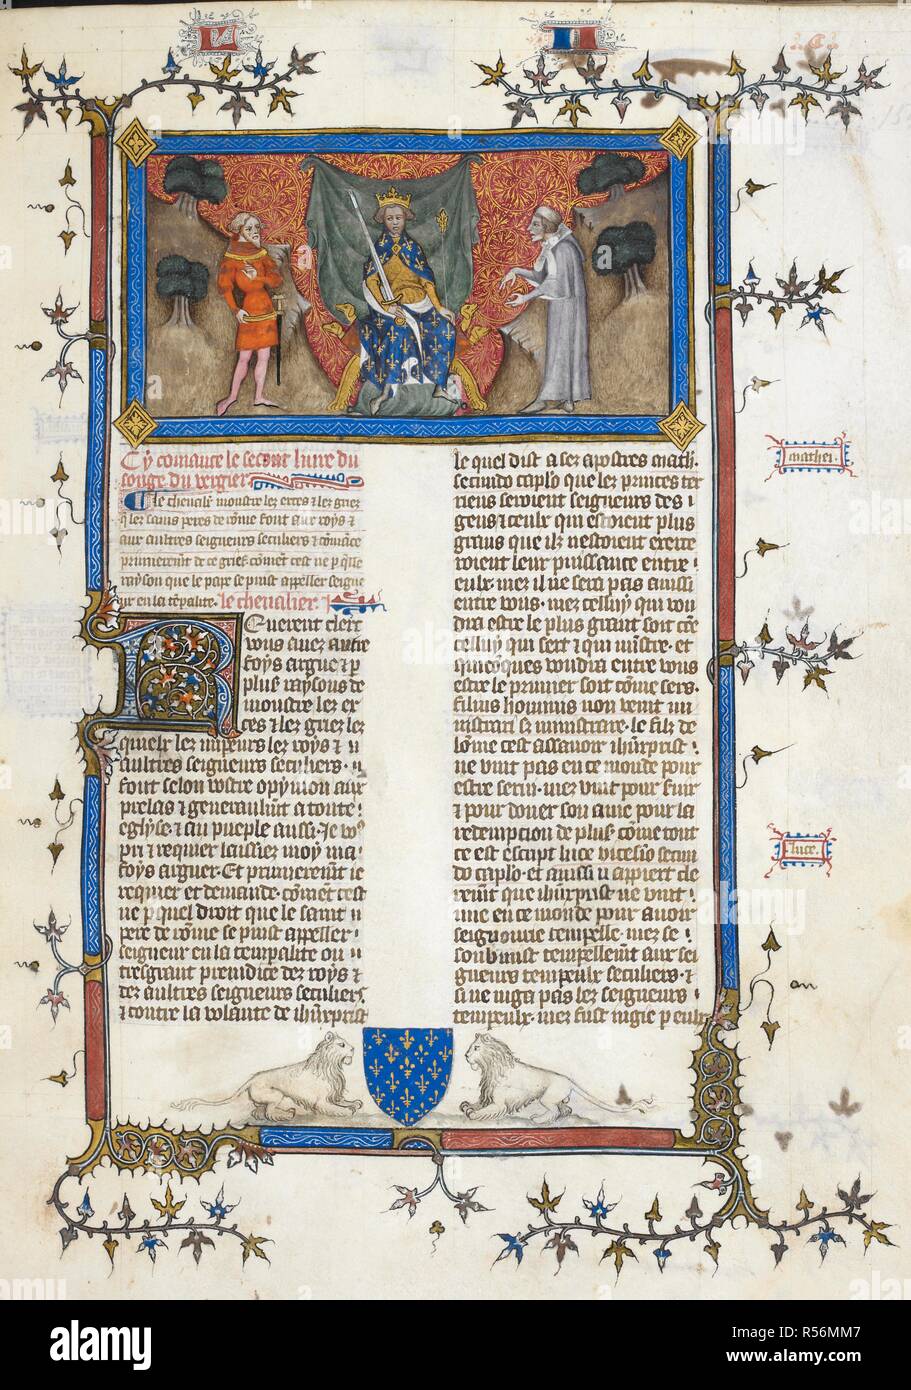 Cy comance le second liure du
songe du vergier
le chevalr monstre les exces & les grief
q les sains peres de rome font aux roys &
aux aultres seigneurs seculiers & comance
premierement de ce grief coment cest ne p que
rayson que le pape se puist appeller seigne
ur en la tepalite. le chevalier.
Everent clerc
vous avez autre
foys argue & p
plus raysons de
monstre les ex
ces & les griez lez
quielx lez les roys &
aultres seigneurs seculiers.
font selon vostre opynion aux
prelas & generaulmt a toute
eglyse. & au pueple aussi. Je vos
pri & requier laissiez moy ma
foys arguer. Et premierement ie
requier et demande. coment cest
ne p quel droit que le saint
pere de rome se puist appeller
seigneur en la temporalite ou
tresgrant preiudice dez roys &
dez aultres seigneurs seculiers
& contre la volante de ihucrist
le quel dist a sez apostres math.
secundo caplo que lez princes ter
riens seroient seigneurs des
gens & ceulx qui estoient plus
grans que ilz nestoient exerce
roient leur puissance entre
eulx. mez il ne sera pas aussi
entre vous. mez celluy qui vou
dra estre le plus grant soit cõe
celluy qui sert & qui ministre. et
quicõques voudra entre vous
estre le premier soit cõme sers.
filius hominis non venit mi
nistrari sz ministrare. le filz de
lome cest assavoir ihucrist
ne vint pas en ce monde pour
estre servi. mez vint pour servir
& pour doner son ame pour la
redemption de plus come tout
ce est escript luce vicesio secun
do caplo. et aussi il appiert cle
rement que ihucrist ne vint
mie en ce monde pour avoir
seignourie tempelle. mez se
soubmist tempellemt aux sei
gneurs tempeulx seculiers. &
si ne iuga pas lez seigneurs
tempeulx. mez fust iugie p eulx
mathei.
luce.
alamy
a
Image ID: R56MM7
www.alamy.com